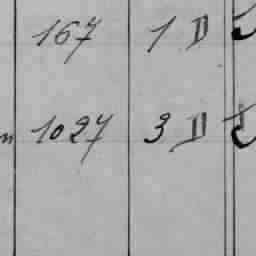 167 1 D
1027 3 D